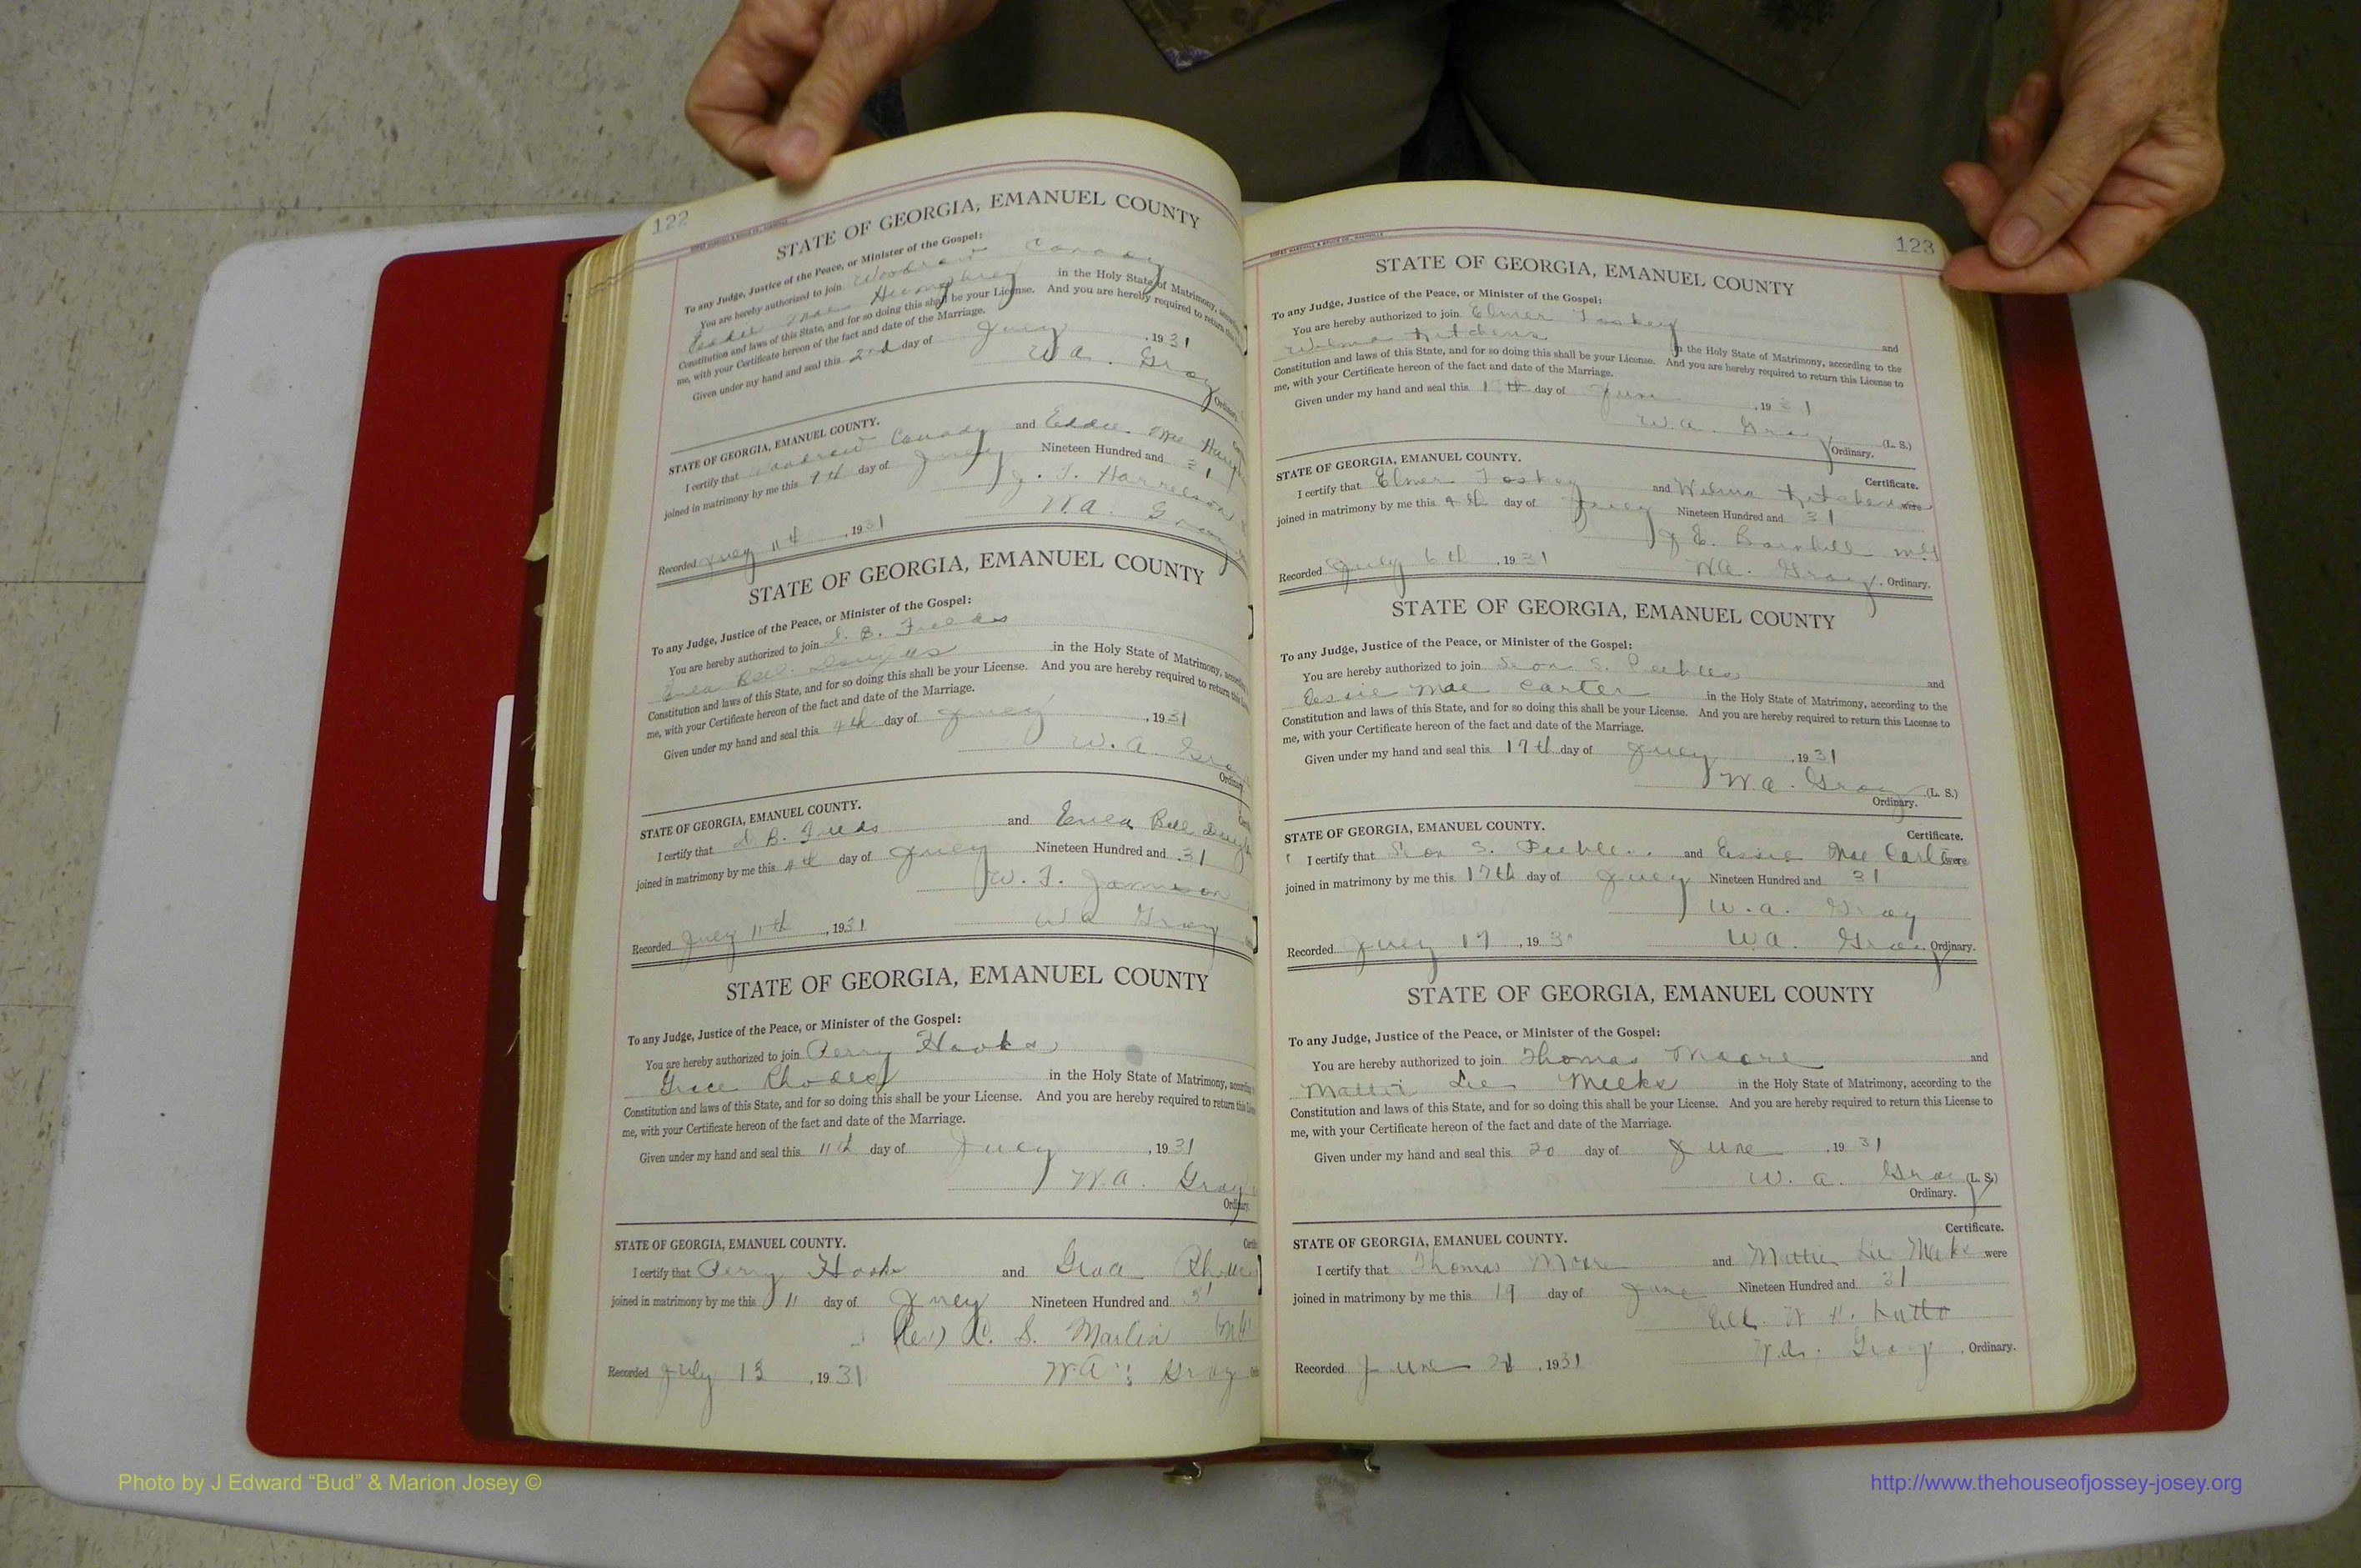 122
STATE OF GEORGIA, EMANUEL COUNTY
To any Judge, Justice of the Peace, or Minister of the Gospel:
You are hereby authorized to join Woodrow Canady
Eddie Mae Humphrey in the Holy State of Matrimony,
Constitution and laws of this State, and for so doing this shall be your License. And you are hereby required to return
me, with your Certificate hereon of the fact and date of the Marriage.
Given under my hand and seal this 2nd day of July, 1931
W.A. Gray
Ordinary.
STATE OF GEORGIA, EMANUEL COUNTY.
I certify that Woodrow Canady and Eddie Mae
joined in matrimony by me this 7th day of July Nineteen Hundred and 31
J. T. Harrelson
Recorded July 11th, 1931 W.A. Gray
STATE OF GEORGIA, EMANUEL COUNTY
To any Judge, Justice of the Peace, or Minister of the Gospel:
You are hereby authorized to join B. Fields
Bell in the Holy State of Matrimony,
Constitution and laws of this State, and for so doing this shall be your License. And you are hereby required to return
me, with your Certificate hereon of the fact and date of the Marriage.
Given under my hand and seal this 4th day of July, 1931
W. A. Gray
Ordinary
STATE OF GEORGIA, EMANUEL COUNTY.
I certify that B. Fields and Bell
joined in matrimony by me this 4th day of July Nineteen Hundred and 31
W. J. Jameson
Recorded July 11th, 1931 W A Gray
STATE OF GEORGIA, EMANUEL COUNTY
To any Judge, Justice of the Peace, or Minister of the Gospel:
You are hereby authorized to join Perry Hooks
Grace Rhodes in the Holy State of Matrimony,
Constitution and laws of this State, and for so doing this shall be your License. And you are hereby required to return this
me, with your Certificate hereon of the fact and date of the Marriage.
Given under my hand and seal this 11th day of July, 1931
W.A. Gray
Ordinary.
STATE OF GEORGIA, EMANUEL COUNTY.
I certify that Perry Hooks and Grace
joined in matrimony by me this 11 day of July Nineteen Hundred and 31
S. Marlin
Recorded July 13, 1931 W.A. Gray
123
STATE OF GEORGIA, EMANUEL COUNTY
To any Judge, Justice of the Peace, or Minister of the Gospel:
You are hereby authorized to join Elmer Toskey and
Wilma Kitchens in the Holy State of Matrimony, according to the
Constitution and laws of this State, and for so doing this shall be your License. And you are hereby required to return this License to
me, with your Certificate hereon of the fact and date of the Marriage.
Given under my hand and seal this day of June, 1931
W.A. Gray (L. S.)
Ordinary.
STATE OF GEORGIA, EMANUEL COUNTY. Certificate.
I certify that Elmer Toskey and Wilma Kitchens were
joined in matrimony by me this 4th day of July Nineteen Hundred and 31
J E. Barnhill
Recorded July 6th, 1931 W.A. Gray, Ordinary.
STATE OF GEORGIA, EMANUEL COUNTY
To any Judge, Justice of the Peace, or Minister of the Gospel:
You are hereby authorized to join S. Peebles and
Essie Mae Carter in the Holy State of Matrimony, according to the
Constitution and laws of this State, and for so doing this shall be your License. And you are hereby required to return this License to
me, with your Certificate hereon of the fact and date of the Marriage.
Given under my hand and seal this 17th day of July, 1931
W.A. Gray (L. S.)
Ordinary.
STATE OF GEORGIA, EMANUEL COUNTY. Certificate.
I certify that S. Peebles and Essie Mae Carter were
joined in matrimony by me this 17th day of July Nineteen Hundred and 31
W.A. Gray
Recorded July 17, 193 W.A. Gray Ordinary.
STATE OF GEORGIA, EMANUEL COUNTY
To any Judge, Justice of the Peace, or Minister of the Gospel:
You are hereby authorized to join Thomas Moore and
Mattie Lee Meeks in the Holy State of Matrimony, according to the
Constitution and laws of this State, and for so doing this shall be your License. And you are hereby required to return this License to
me, with your Certificate hereon of the fact and date of the Marriage.
Given under my hand and seal this 20 day of June, 1931
W. A. Gray (L. S.)
Ordinary.
STATE OF GEORGIA, EMANUEL COUNTY. Certificate.
I certify that Thomas Moore and Mattie Lee Meeks were
joined in matrimony by me this 19 day of June Nineteen Hundred and 31
Recorded June 21, 1931 W.A. Gray, Ordinary.
Photo by J Edward “Bud” & Marion Josey ©
http://www.thehouseofjossey-josey.org